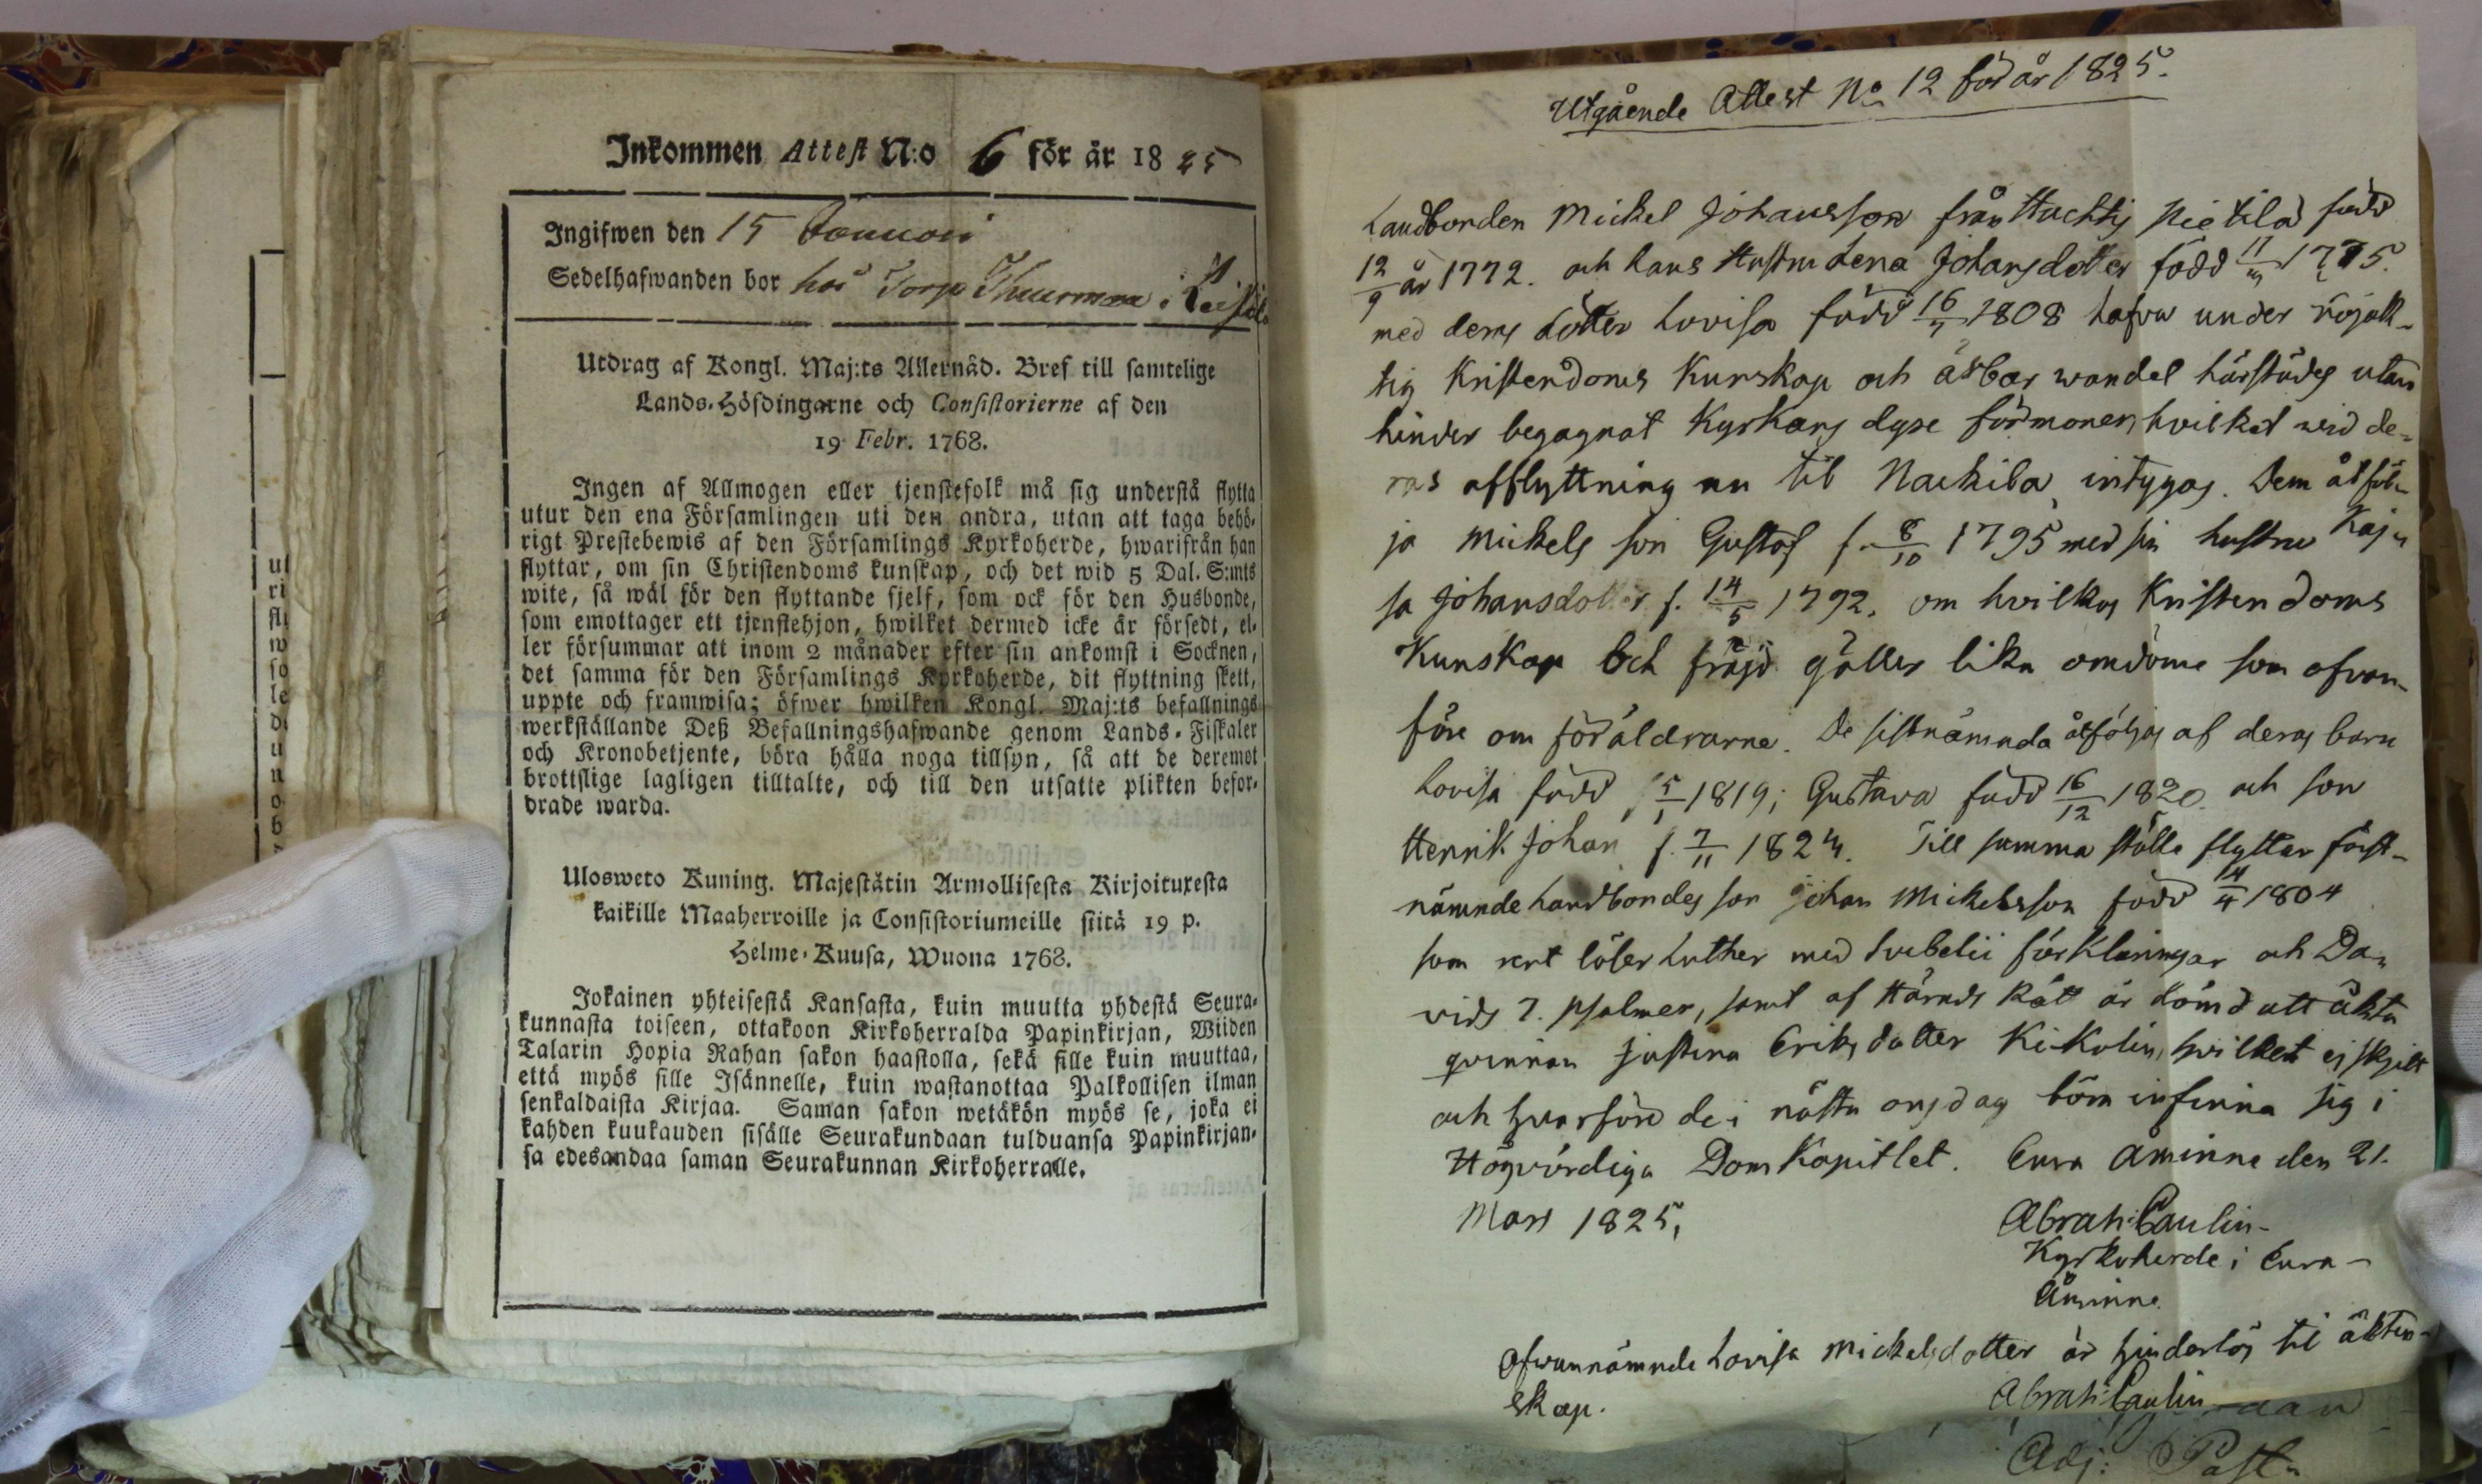 Inkommen Attest N:o 6 för år 1825
Ingifwen den 15 Januari
Sedelhafwanden bor hos Torp
Utdrag af Kongl. Maj:ts Allernåd. Bref till samtelige
Lands-Höfdingarne och Consistorierne af den
19 Febr. 1768.
Ingen af Allmogen eller tjenstefolk må sig understå flytta
utur den ena Församlingen uti den andra, utan att taga behö-
rigt Prestebewis af den Församlings Kyrkoherde, hwarifrån han
flyttar, om sin Christendoms kunskap, och det wid 5 Dal. S:mts
wite, så wäl för den flyttande sjelf, som ock för den Husbonde,
som emottager ett tjenstehjon, hwilket dermed icke är försedt, el-
ler försummar att inom 2 månader efter sin ankomst i Socknen,
det samma för den Församlings Kyrkoherde, dit flyttning skett,
uppte och framwisa; öfwer hwilken Kongl. Maj:ts befallnings
werkställande Deß Befallningshafwande genom Lands-Fiskaler
och Kronobetjente, böra hålla noga tillsyn, så att de deremot
brottslige lagligen tilltalte, och till den utsatte plikten befor-
drade warda.
Ulosweto Kuning. Majestätin Armollisesta Kirjoituxesta
kaikille Maaherroille ja Consistoriumeille siitä 19 p.
Helme-Kuusa, Wuona 1768.
Jokainen yhteisestä Kansasta, kuin muutta yhdestä Seura-
kunnasta toiseen, ottakoon Kirkoherralda Papinkirjan, Wiiden
Talarin Hopia Rahan sakon haastolla, sekä sille kuin muuttaa,
että myös sille Isännelle, kuin wastanottaa Palkollisen ilman
senkaldaista Kirjaa. Saman sakon wetäkön myös se, joka ei
kahden kuukauden sisälle Seurakundaan tulduansa Papinkirjan-
sa edesandaa saman Seurakunnan Kirkoherralle.
Utgående Attest No 12 för år 1825.
Landbonden Mickel Johansson från Huchtis Pietilä född
12/9 år 1772. och hans Hustru Lena Johansdotter född 1775.
med deras dotter Lovisa född 1808 hafva under
tig Kristendoms Kunskap och ärbar wandel härstädes utan
hinder begagnat Kyrkans dyre förmoner, hvilket wid de-
ras afflyttning nu til Nackila intygas. Dem åtföl-
ja Mickels son Gustaf f. 8/10 1795 med sin hustru Kaj-
sa Johansdotter f. 14/5 1792. om hvilkas Kristendoms
Kunskap och fräjd gäller lika omdöme som ofvan-
före om föräldrarne. De sistnämnda åtföljas af deras barn
Lovisa född 5/1 1819; Gustava född 16/12 1820. och son
Henrik Johan f. 7/11 1824. Till samma ställe flyttar först-
nämnde Landbondes son Johan Mickelsson född 14/4 1804
som rent läser Luther med Svebelii förklaringar och Da-
vids 7. psalmer, samt af Härads Rätt är dömd att äkta
qvinnan Justina Eriksdotter Kikolin, hvilket ej skjett
och hvarföre de i nästa onsdag böra infinna sig i
Högvördiga DomKapitlet. Eura Åminne den 21.
Mars 1825,
Abrah: Paulin
Kyrkoherde i Eura-
Åminne.
Ofwannämnde Lovisa Mickelsdotter är hinderlös til äkten-
skap.
Abrah: Paulin
Adj: Past